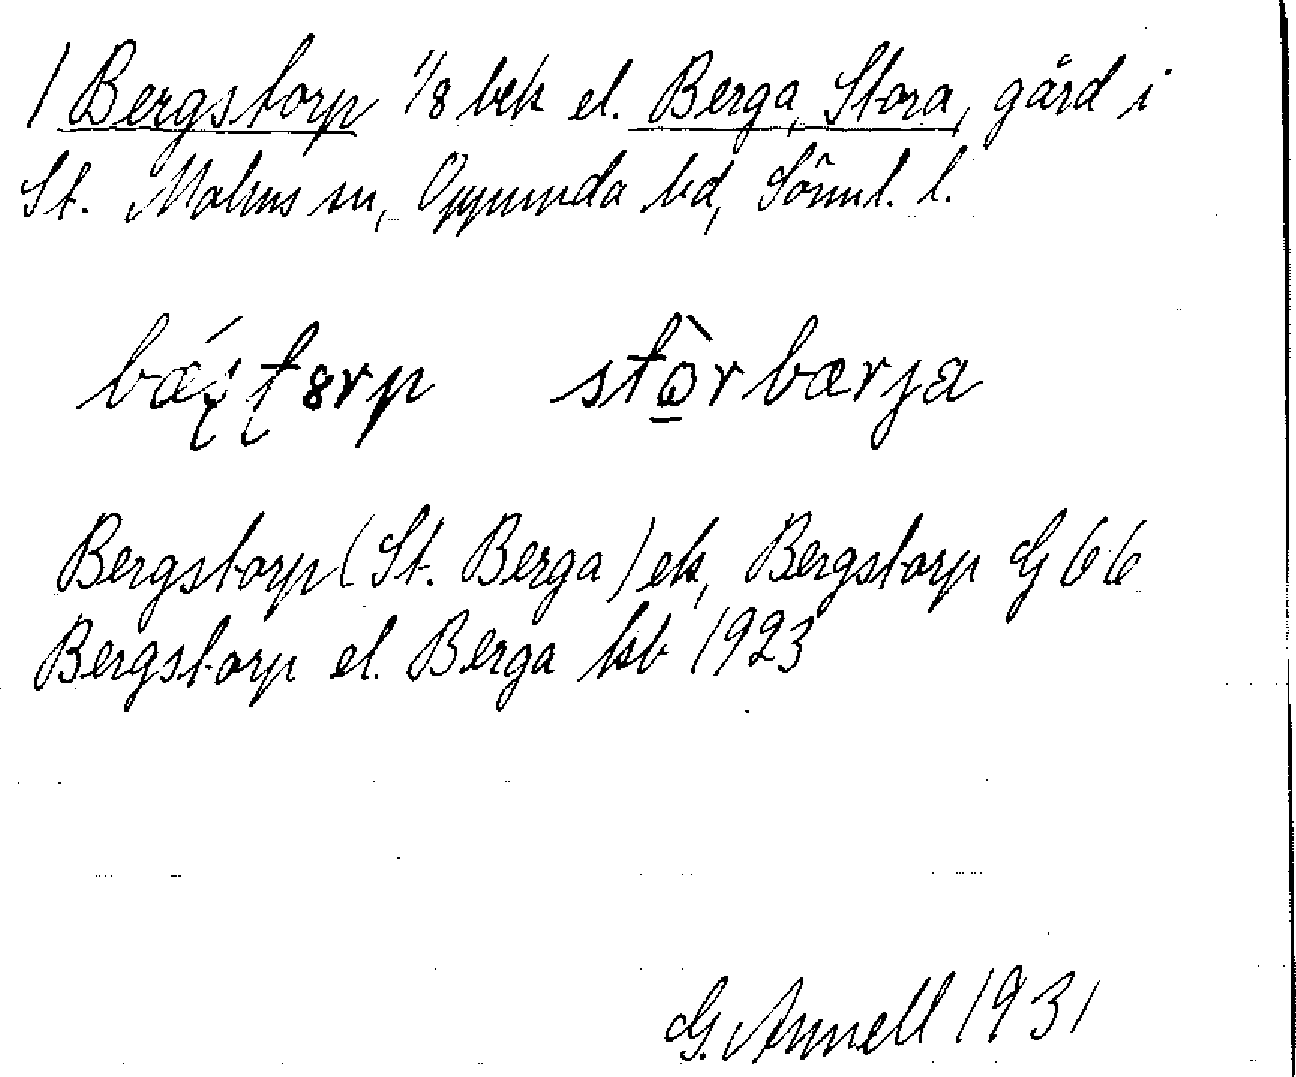 1 Bergstorp 1/8 bek el. Berga, Stora, gård i
St. Malms sn, Oppunda hd, Söml. l.
stòrbærja
Bergstorp (St. Berga) ek, Bergstorp G 66
Bergstorp el. Berga hsb 1923
G. Annell 1931